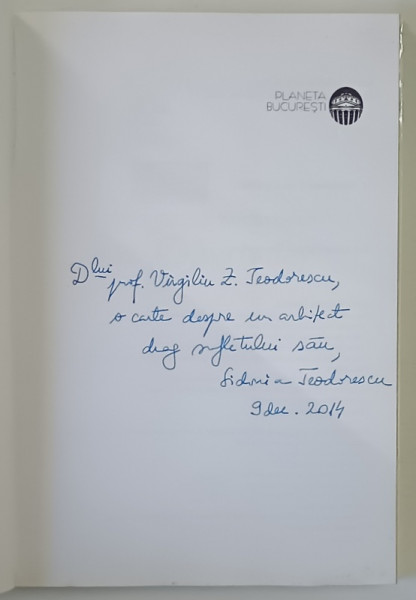 PLANETA
BUCUREȘTI
Dlui prof. Virgiliu Z. Teodorescu,
o carte despre un arhitect
drag sufletului său,
Sidonia Teodorescu
9 dec. 2014